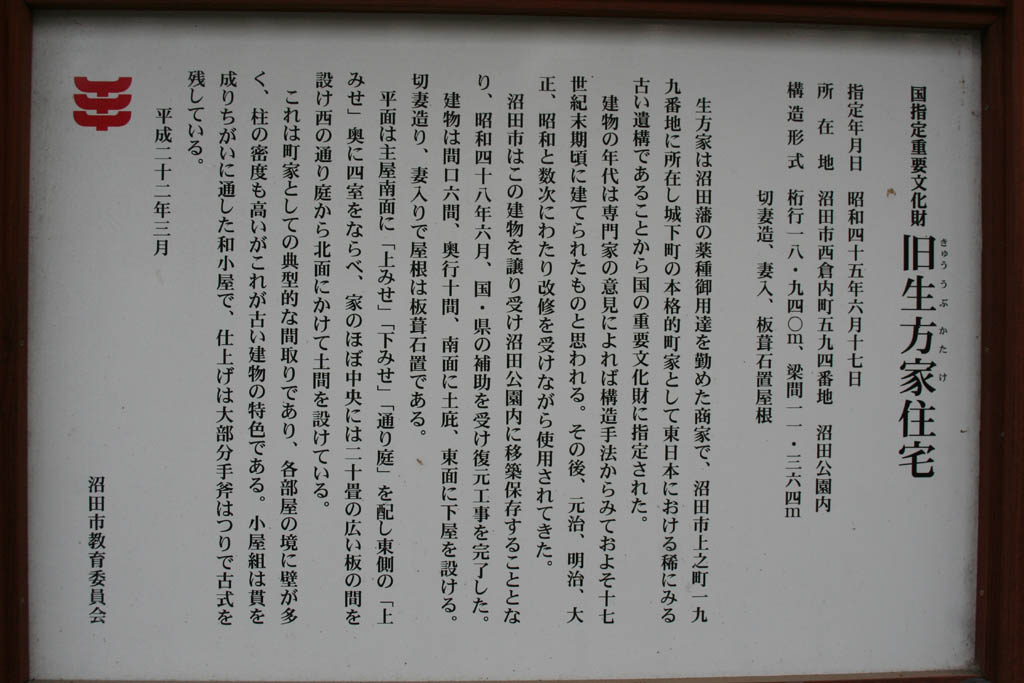 国指定重要文化財 旧生方家住宅
きゅううぶかたけ
指定年月日 昭和四十五年六月十七日
所在地 沼田市西倉内町五九四番地 沼田公園内
構造形式 桁行一八・九四〇m、梁間一一・三六四m
切妻造、妻入、板葺石置屋根
生方家は沼田藩の薬種御用達を勤めた商家で、沼田市上之町一九
九番地に所在し城下町の本格的町家として東日本における稀にみる
古い遺構であることから国の重要文化財に指定された。
建物の年代は専門家の意見によれば構造手法からみておよそ十七
世紀末期頃に建てられたものと思われる。その後、元治、明治、大
正、昭和と数次にわたり改修を受けながら使用されてきた。
沼田市はこの建物を譲り受け沼田公園内に移築保存することとな
り、昭和四十八年六月、国・県の補助を受け復元工事を完了した。
建物は間口六間、奥行十間、南面に土庇、東面に下屋を設ける。
切妻造り、妻入りで屋根は板葺石置である。
平面は主屋南面に「上みせ」「下みせ」「通り庭」を配し東側の「上
みせ」奥に四室をならべ、家のほぼ中央には二十畳の広い板の間を
設け西の通り庭から北面にかけて土間を設けている。
これは町家としての典型的な間取りであり、各部屋の境に壁が多
く、柱の密度も高いがこれが古い建物の特色である。小屋組は貫を
成りちがいに通した和小屋で、仕上げは大部分手斧はつりで古式を
残している。
平成二十二年三月
沼田市教育委員会